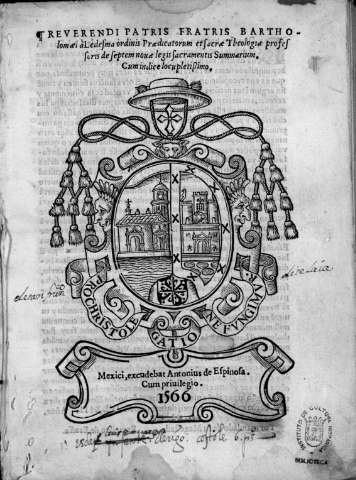 ¶REVERENDI PATRIS FRATRIS BARTHO-
lomæi à Ledesma ordinis Prædicatorum et sacræ Theologiæ profes
soris de septem nouæ legis sacramentis Summarium.
Cum indice locupletissimo.
PRO CHRISTO LE
GATIO
NE FVNGIMVR
Mexici, excudebat Antonius de Espinosa.
Cum priuilegio.
1566
INSTITUTO DE CULTURA HISPANICA
BIBLIOTECA